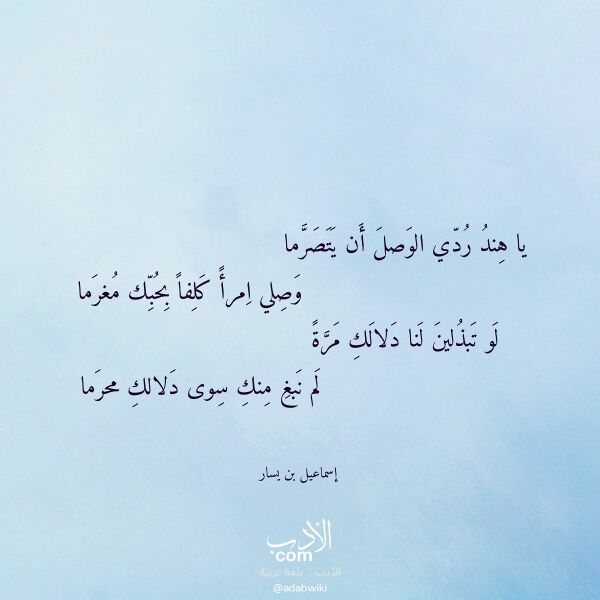 يا هِندُ رُدّي الوَصلَ أَن يَتَصَرَّما
وَصِلي اِمرأً كَلِفاً بِحُبِّك مُغرَما
لَو تَبذُلينَ لَنا دَلالَكِ مَرَّةً
لَم نَبغِ مِنكِ سِوى دَلالكِ محرَما
إسماعيل بن يسار
الأدب
com
الأدب .. بلغة عربية
@adabwiki